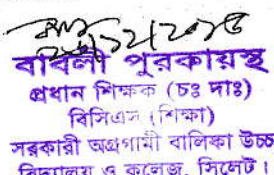 বাবলী পুরকায়স্থ
প্রধান শিক্ষক (চঃ দাঃ)
বিসিএস (শিক্ষা)
সরকারী অগ্রগামী বালিকা উচ্চ
বিদ্যালয় ও কলেজ, সিলেট।